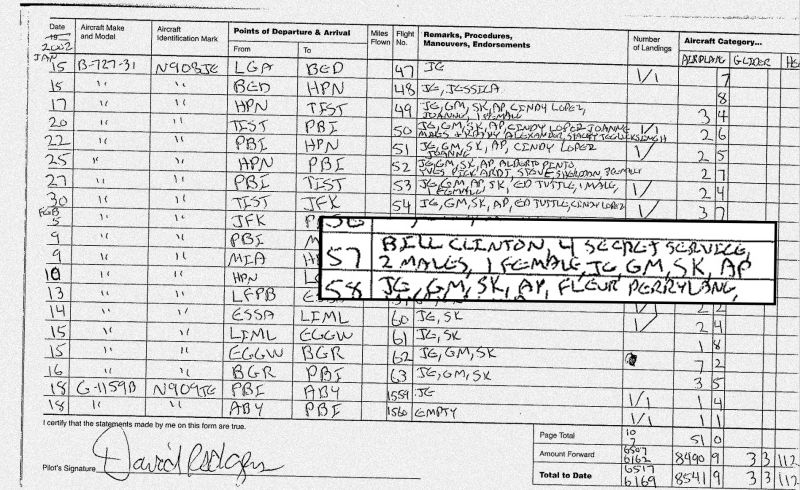 Date Aircraft Make and Model Aircraft Identification Mark Points of Departure & Arrival Miles Flown Flight No. Remarks, Procedures, Maneuvers, Endorsements Number of Landings Aircraft Category...
2002 From To AIRPLANE GLIDER HE
JAN
15 B-727-31 N908JE LGA BED 47 JE 1/1 7
15 " " BED HPN 48 JE, JESSICA 8
17 " " HPN TIST 49 JE, GM, SK, AP, CINDY LOPEZ, 3 4
JOANNE, 1 FEMALE
20 " " TIST PBI 50 JE, GM, SK, AP, CINDY LOPEZ JOANNE 1/ 2 6
22 " " PBI HPN 51 JE, GM, SK, AP, CINDY LOPEZ 1/ 2 5
JOANNE
25 " " HPN PBI 52 JE, GM, SK, AP ALBERTO PINTO 2 7
27 " " PBI TIST 53 JE, GM, AP, SK, ED TUTTLE, 1 MALE, 1/ 2 4
1 FEMALE
30 " " TIST JFK 54 JE, GM, SK, AP, ED TUTTLE, CINDY LOPEZ 1/ 3 7
FEB
5 " " JFK P
9 " " PBI M
9 " " MIA H
10 " " HPN
13 " " LFPB
57 BILL CLINTON, 4 SECRET SERVICE,
2 MALES, 1 FEMALE, JE, GM, SK, AP
58 JE, GM, SK, AP, FLEUR PERRY LANG,
14 " " ESSA LIML 60 JE, SK 1/ 2 4
15 " " LIML EGGW 61 JE, SK 1 8
15 " " EGGW BGR 62 JE, GM, SK 7 2
16 " " BGR PBI 63 JE, GM, SK 3 5
18 G-1159B N909JE PBI ABY 1559 JE 1/1 1 4
18 " " ABY PBI 1560 EMPTY 1/1 1 1
I certify that the statements made by me on this form are true.
Page Total 10 7 51 0
Amount Forward 6507 6162 8490 9 3 3 112
Pilot's Signature David Rodgers
Total to Date 6517 6169 8541 9 3 3 112